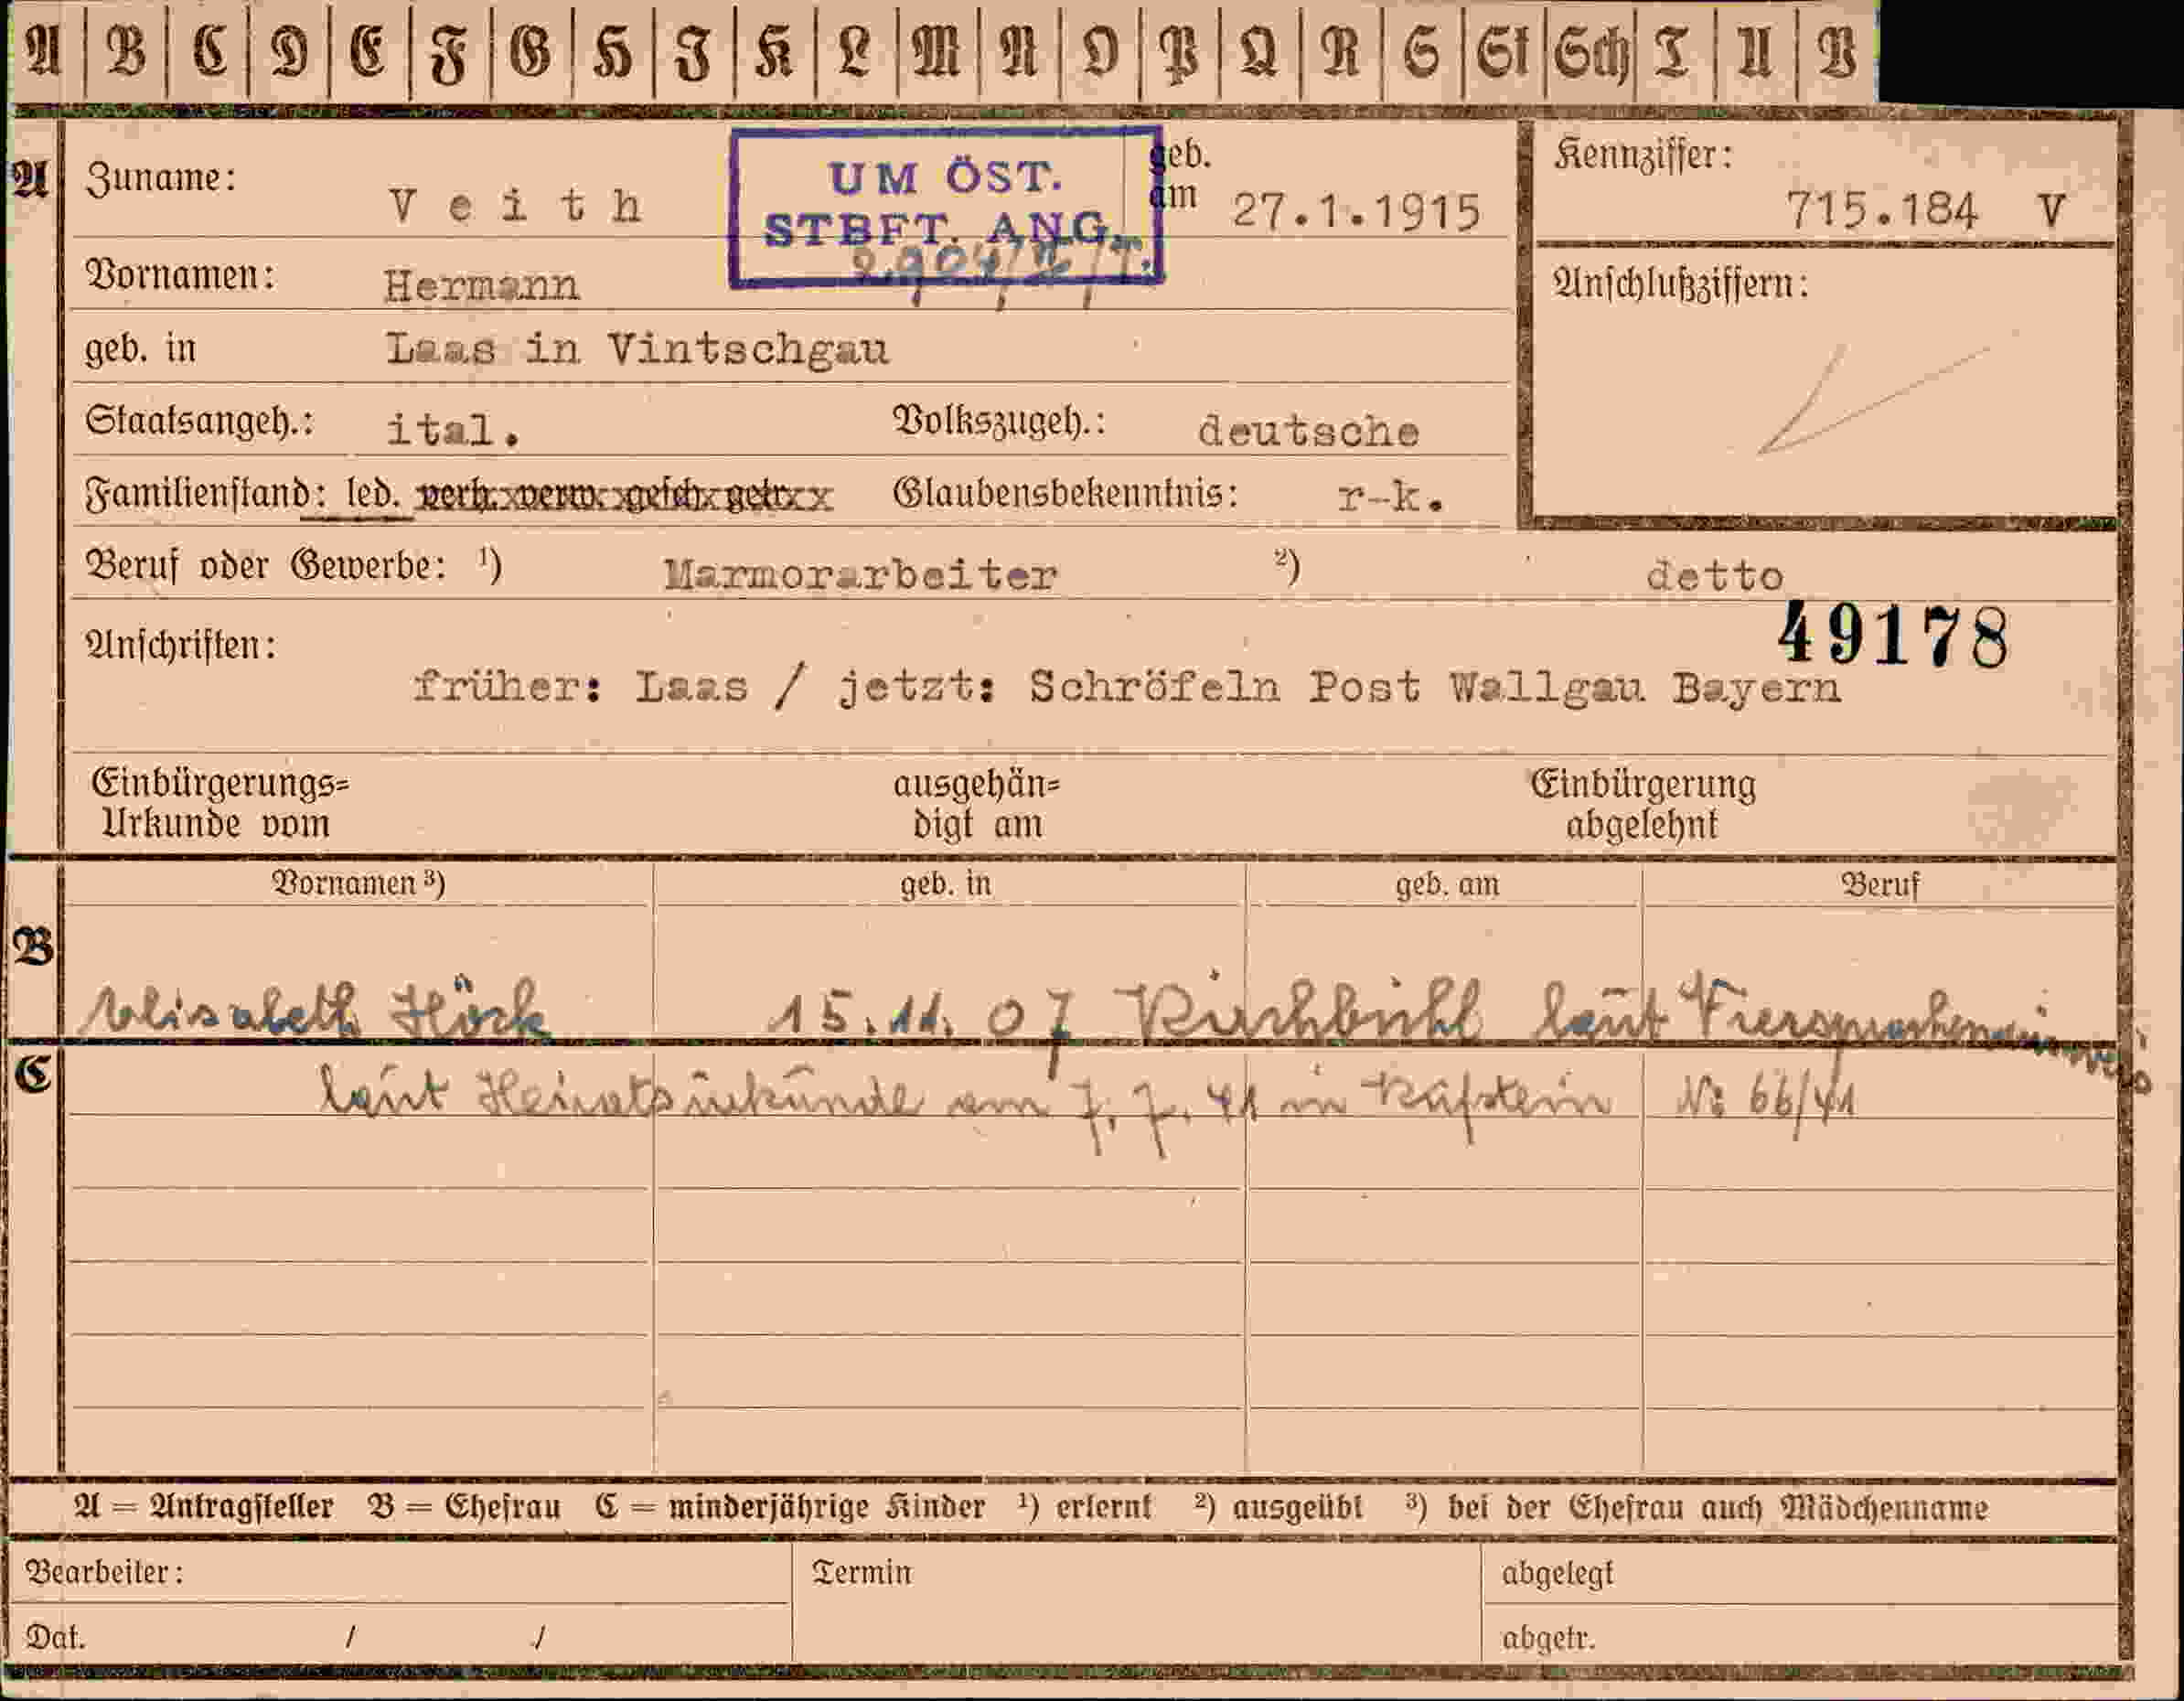 A B C D E F G H I K L M N O P Q R S St Sch T U V
A Zuname: Veith geb. am 27.1.1915 Kennziffer: 715.184 V
UM ÖST.
STBFT. ANG.
Vornamen: Hermann Anschlußziffern:
geb. in Laas in Vintschgau
Staatsangeh.: ital. Volkszugeh.: deutsche
Familienstand: led. verh. verw. gesch. getr. Glaubensbekenntnis: r-k.
Beruf oder Gewerbe: ¹) Marmorarbeiter ²) detto
49178
Anschriften:
früher: Laas / jetzt: Schröfeln Post Wallgau Bayern
Einbürgerungs= ausgehän= Einbürgerung
Urkunde vom digt am abgelehnt
Vornamen ³) geb. in geb. am Beruf
B
Elisabeth Höck 15.11.07 Kirchbühl laut
C
laut Heiratsurkunde am 7.7.41 in Kufstein No 66/41
A = Antragsteller B = Ehefrau C = minderjährige Kinder ¹) erlernt ²) ausgeübt ³) bei der Ehefrau auch Mädchenname
Bearbeiter: Termin abgelegt
Dat. / / abgetr.